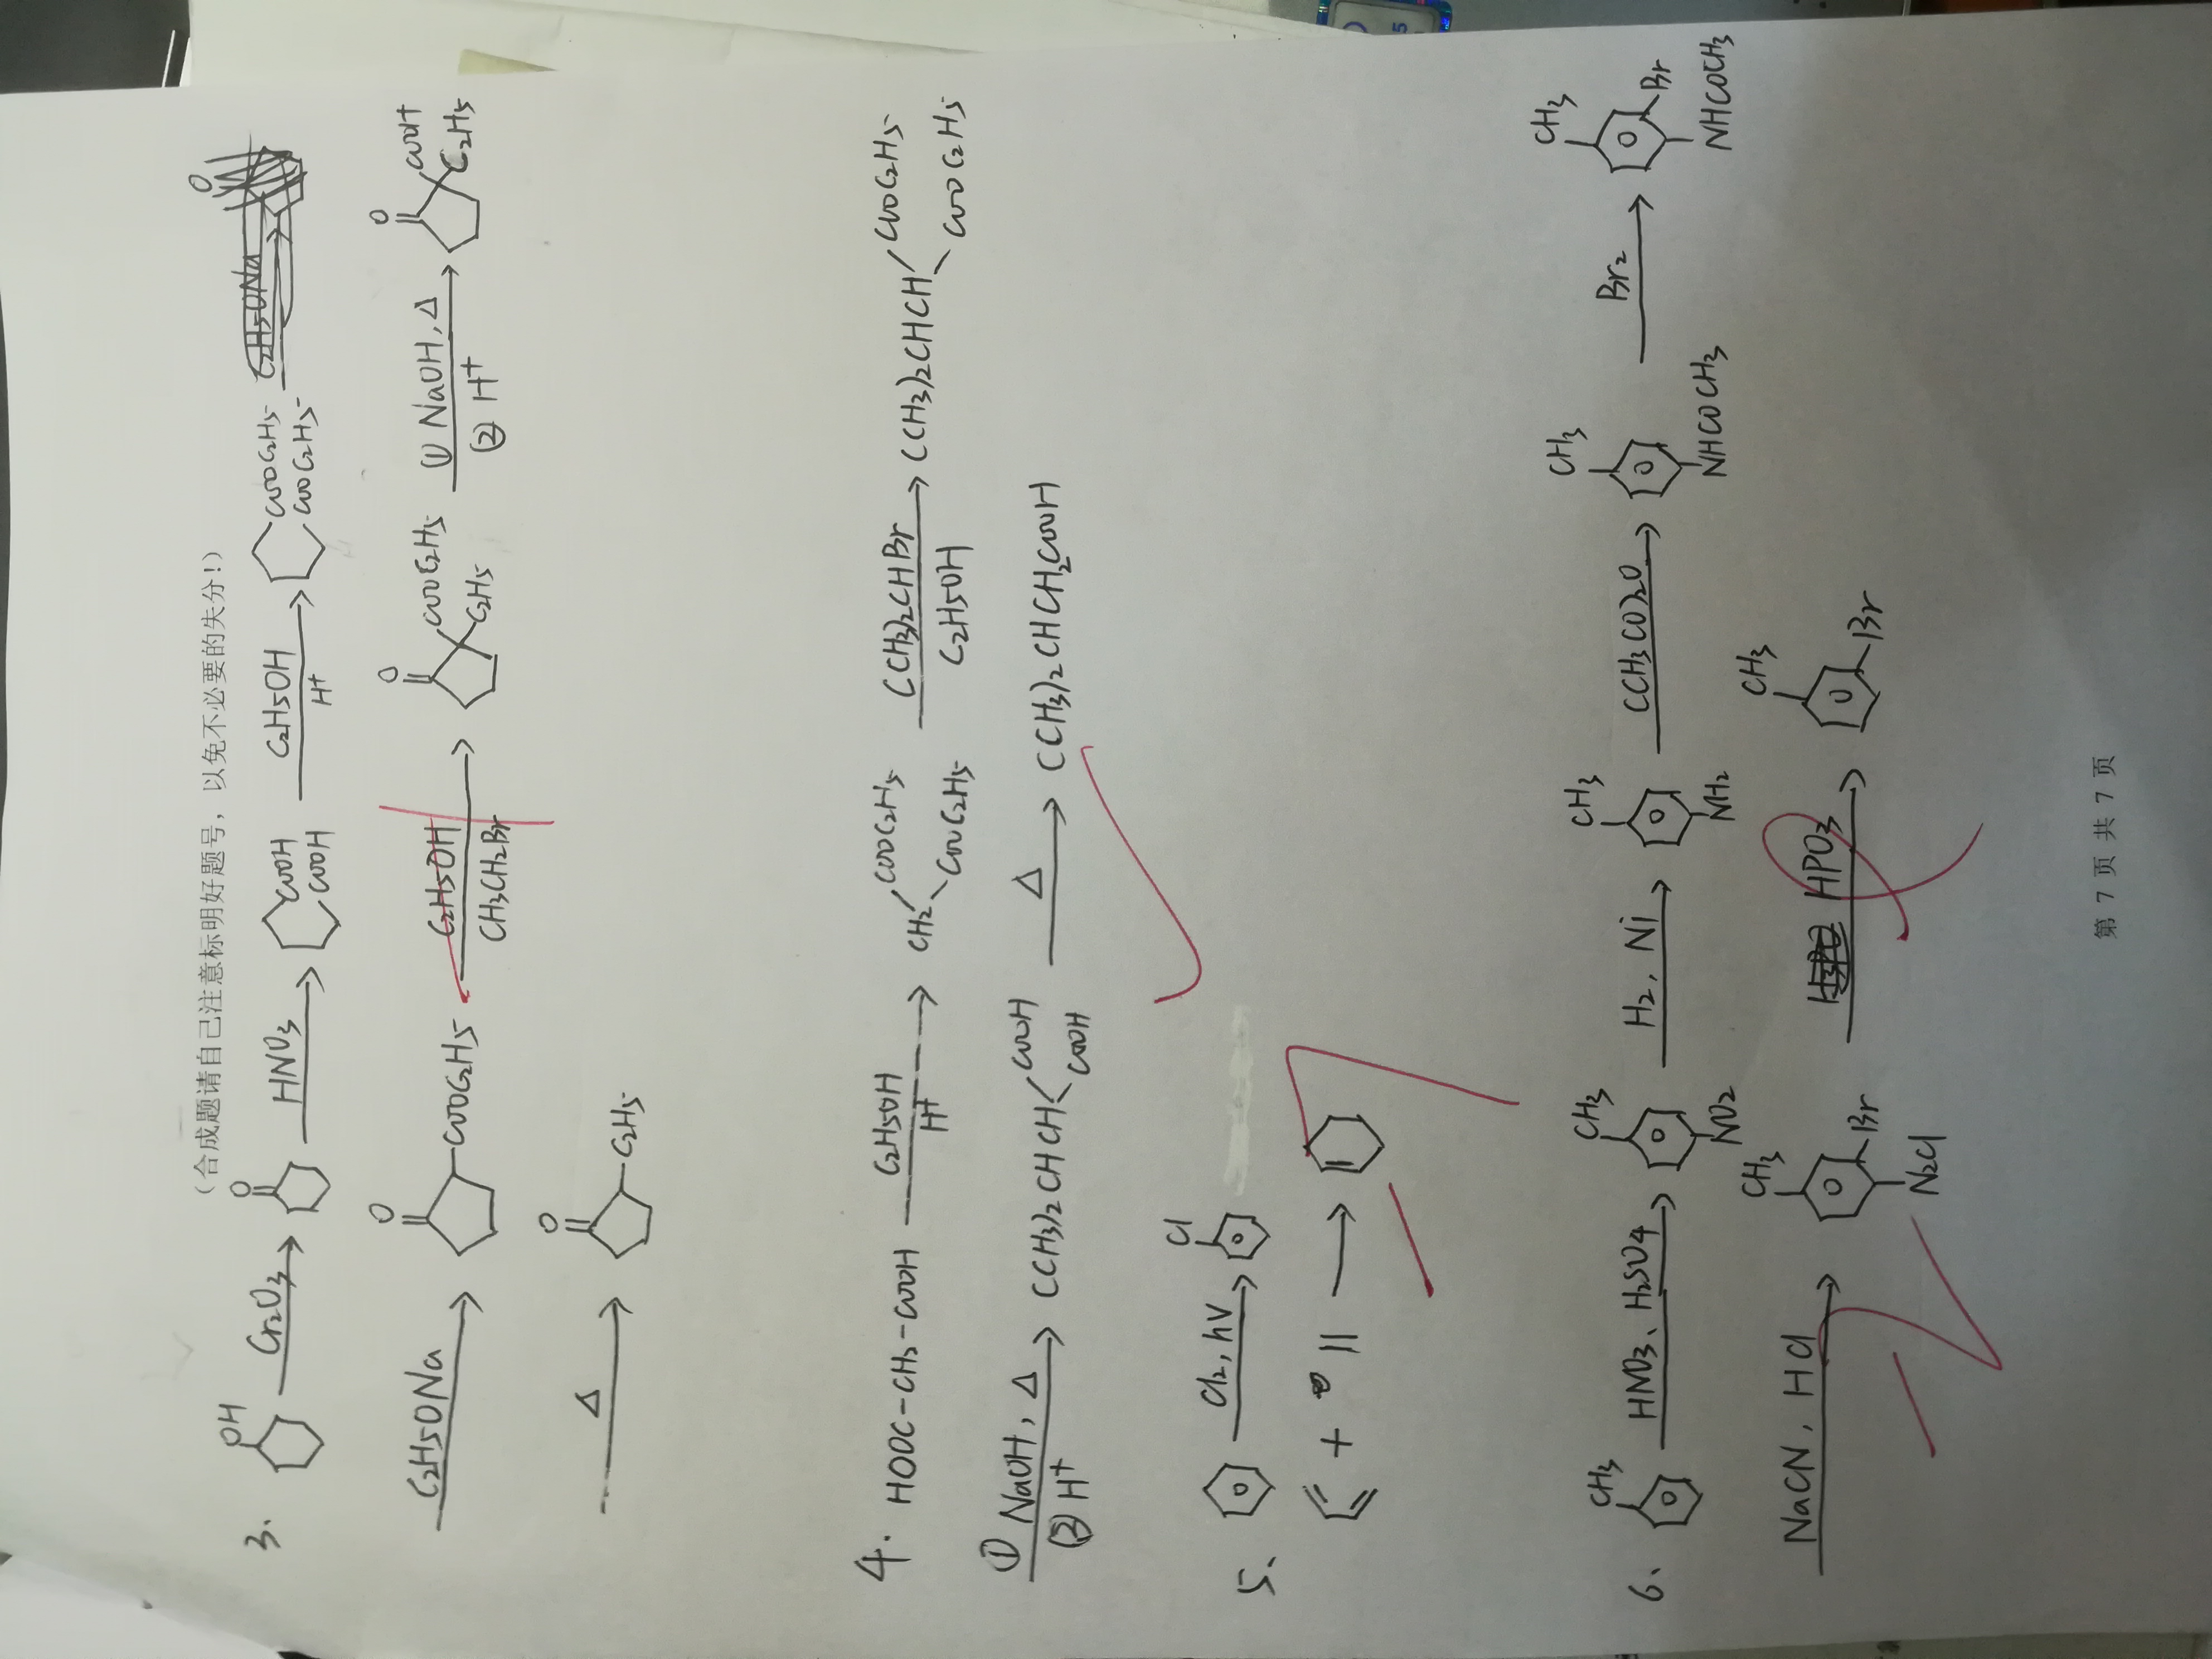 （合成题请自己注意标明好题号，以免不必要的失分！）
3. OH Cr2O3 O HNO3 COOH COOH C2H5OH H+ COOC2H5 COOC2H5 C2H5ONa O
C2H5ONa O COOC2H5 C2H5OH CH3CH2Br O COOC2H5 C2H5 ① NaOH, Δ ② H+ O COOH C2H5
Δ O C2H5
4. HOOC-CH2-COOH C2H5OH H+ CH2 COOC2H5 COOC2H5 (CH3)2CHBr C2H5OH (CH3)2CHCH COOC2H5 COOC2H5
① NaOH, Δ ② H+ (CH3)2CHCH COOH COOH Δ (CH3)2CHCH2COOH
5、 Cl2, hν Cl
+
6、 CH3 HNO3、H2SO4 CH3 NO2 H2, Ni CH3 NH2 (CH3CO)2O CH3 NHCOCH3 Br2 CH3 Br NHCOCH3
NaCN, HCl CH3 Br N2Cl HPO3 CH3 Br
第 7 页 共 7 页